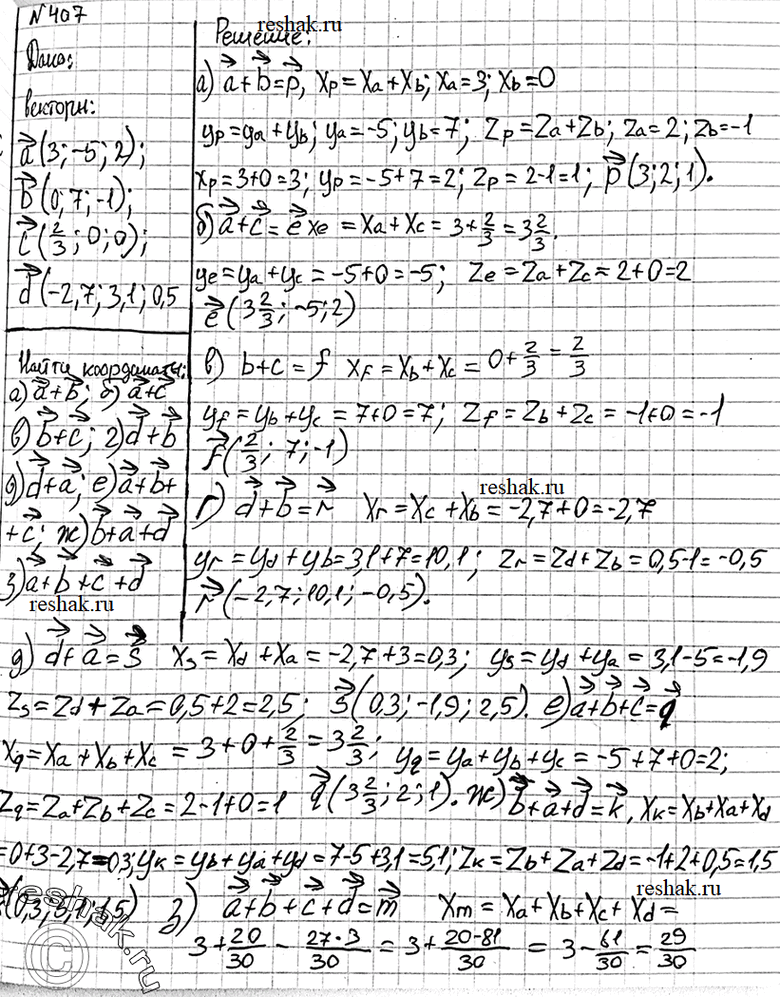 №407
Дано:
векторы:
a⃗(3;-5;2);
b⃗(0;7;-1);
c⃗(2/3;0;0);
d⃗(-2,7;3,1;0,5
Найти координаты:
а) a⃗+b⃗; б) a⃗+c⃗
в) b⃗+c⃗; г) d⃗+b⃗
д) d⃗+a⃗; е) a⃗+b⃗+
+c⃗; ж) b⃗+a⃗+d⃗
з) a⃗+b⃗+c⃗+d⃗
reshak.ru
reshak.ru
Решение:
а) a⃗+b⃗=p⃗, Xp=Xa+Xb; Xa=3; Xb=0
yp=ya+yb; ya=-5; yb=7; Zp=Za+Zb; Za=2; Zb=-1
Xp=3+0=3; yp=-5+7=2; Zp=2-1=1; p⃗(3;2;1).
б) a⃗+c⃗=e⃗ Xe=Xa+Xc=3+2/3=3 2/3.
ye=ya+yc=-5+0=-5; Ze=Za+Zc=2+0=2
e⃗(3 2/3;-5;2)
в) b+c=f Xf=Xb+Xc=0+2/3=2/3
yf=yb+yc=7+0=7; Zf=Zb+Zc=-1+0=-1
f⃗(2/3;7;-1)
reshak.ru
г) d⃗+b⃗=r⃗ Xr=Xc+Xb=-2,7+0=-2,7
yr=yd+yb=3,1+7=10,1; Zr=Zd+Zb=0,5-1=-0,5
r⃗(-2,7;10,1;-0,5).
д) d⃗+a⃗=s⃗ Xs=Xd+Xa=-2,7+3=0,3; ys=yd+ya=3,1-5=-1,9
Zs=Zd+Za=0,5+2=2,5; s⃗(0,3;-1,9;2,5). е) a⃗+b⃗+c⃗=q⃗
Xq=Xa+Xb+Xc=3+0+2/3=3 2/3; yq=ya+yb+yc=-5+7+0=2;
Zq=Za+Zb+Zc=2-1+0=1 q⃗(3 2/3;2;1). ж) b⃗+a⃗+d⃗=k⃗, Xk=Xb+Xa+Xd
=0+3-2,7=0,3; yk=yb+ya+yd=7-5+3,1=5,1; Zk=Zb+Za+Zd=-1+2+0,5=1,5
(0,3;5,1;1,5) з) a⃗+b⃗+c⃗+d⃗=m⃗ Xm=Xa+Xb+Xc+Xd=
reshak.ru
3+20/30-27·3/30=3+20-81/30=3-61/30=29/30
© reshak.ru